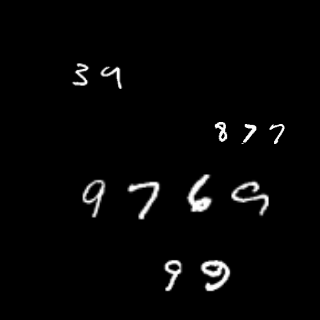 39
877
9769
99